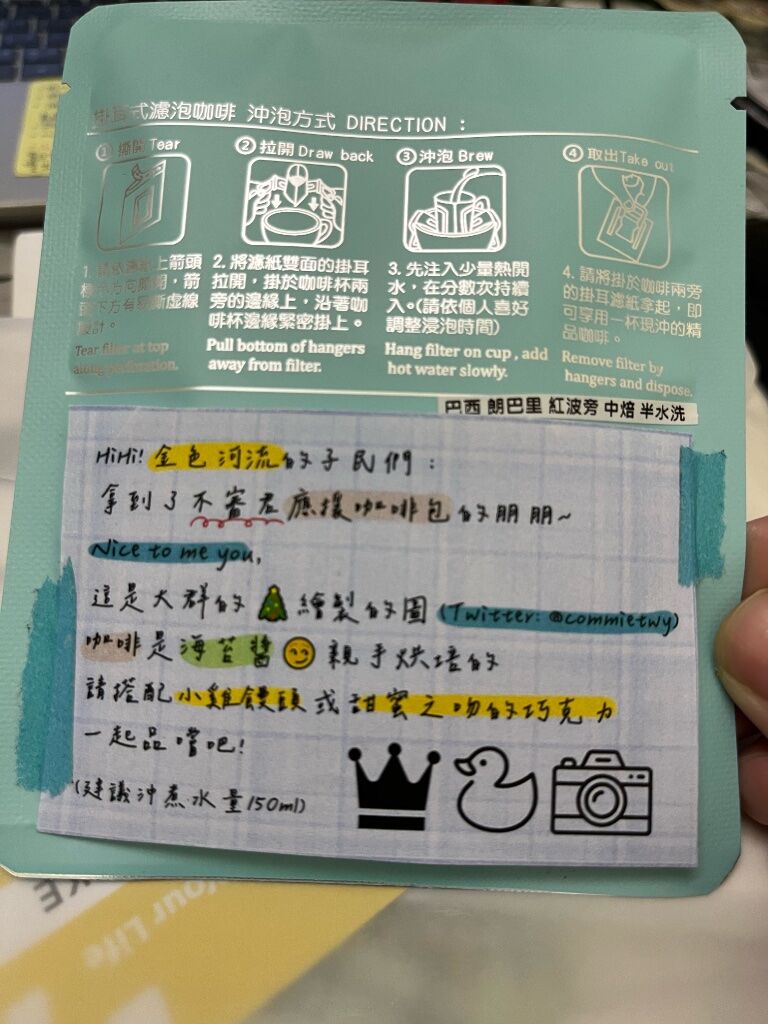 掛耳式濾泡咖啡 沖泡方式 DIRECTION：
① 撕開 Tear
② 拉開 Draw back
③ 沖泡 Brew
④ 取出 Take out
1. 請依濾紙上箭頭
標示方向撕開，箭
頭下方有易撕虛線
設計。
Tear filter at top
along perforation.
2. 將濾紙雙面的掛耳
拉開，掛於咖啡杯兩
旁的邊緣上，沿著咖
啡杯邊緣緊密掛上。
Pull bottom of hangers
away from filter.
3. 先注入少量熱開
水，在分數次持續
入。(請依個人喜好
調整浸泡時間)
Hang filter on cup, add
hot water slowly.
4. 請將掛於咖啡兩旁
的掛耳濾紙拿起，即
可享用一杯現沖的精
品咖啡。
Remove filter by
hangers and dispose.
巴西 朗巴里 紅波旁 中焙 半水洗
HiHi! 金色河流的子民們：
拿到了不審君應援咖啡包的朋朋~
Nice to me you,
這是大群的🎄繪製的圖 (Twitter: @commietwy)
咖啡是海苔醬😏親手烘培的
請搭配小雞饅頭或甜蜜之吻的巧克力
一起品嚐吧!
(建議沖煮水量150ml)
Your Life
KE